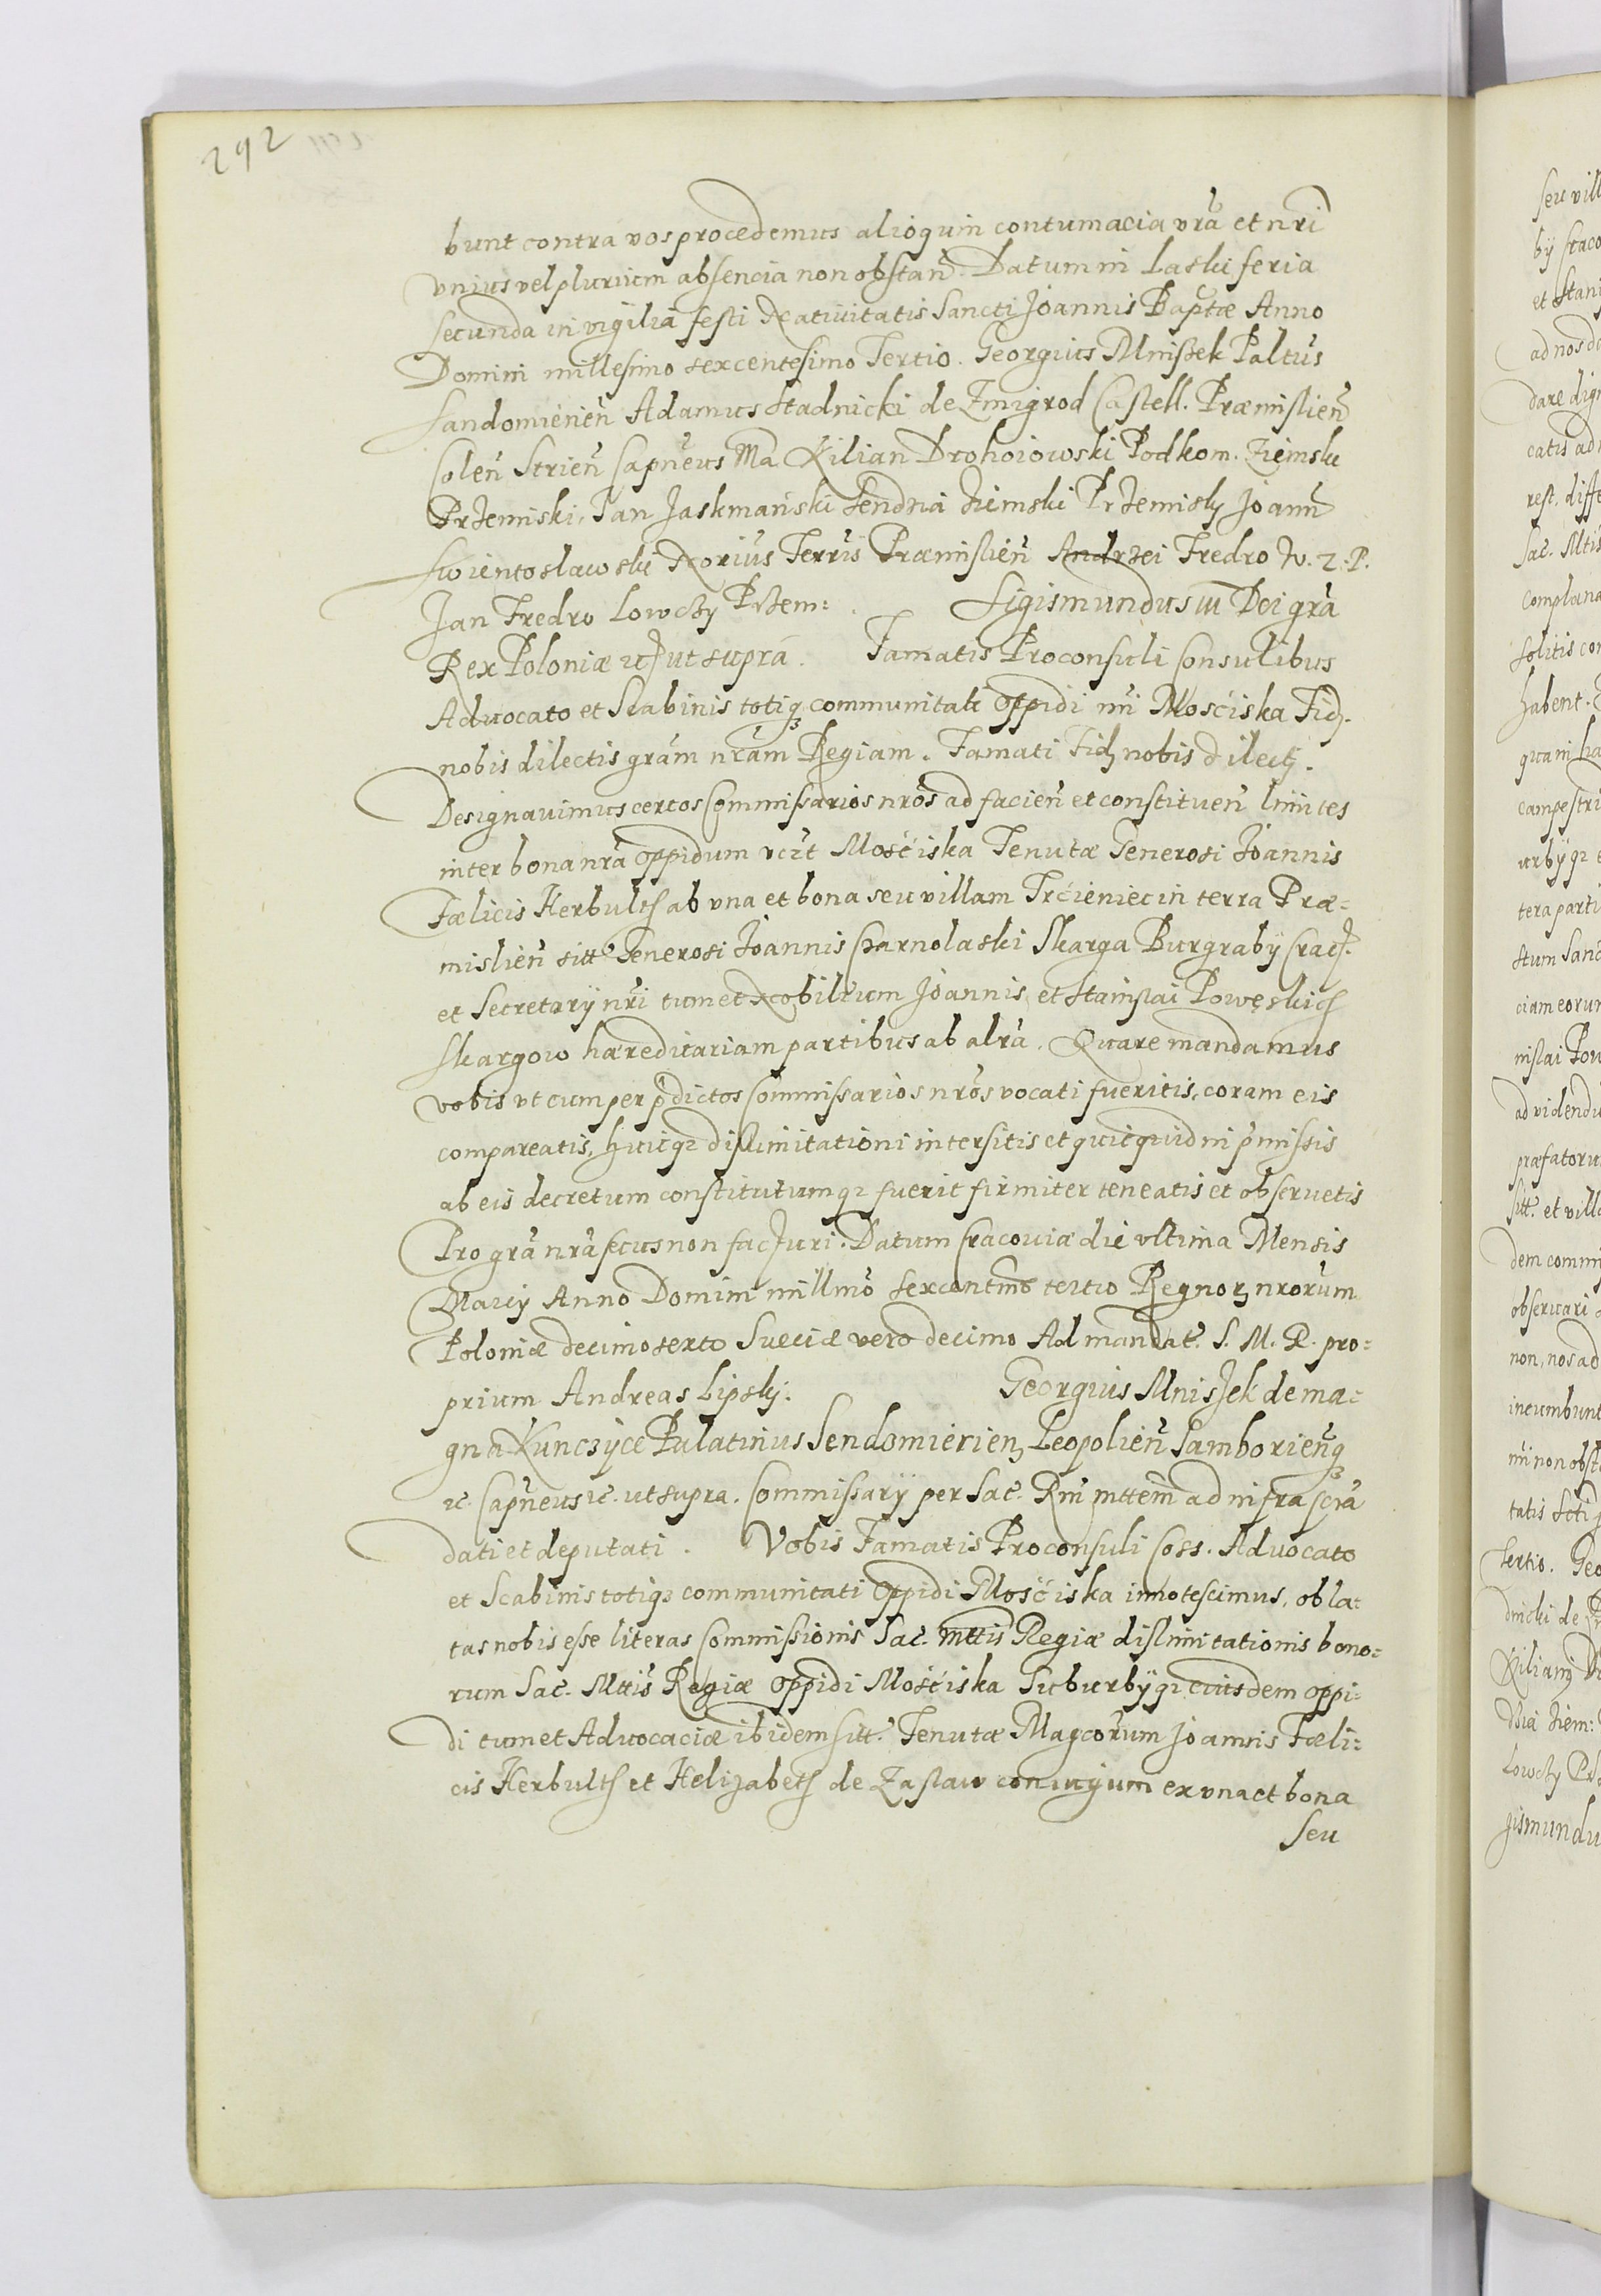 292
bunt contra vos procedemus alioquin contumacia vrã et nri
vnius vel plurium absencia non obstañ. Datum in Laski feria
secunda in vigilia festi Natiuitatis Sancti Joannis Baptæ Anno
Domini millesimo sexcentesimo Tertio. Georgius Mniszek Paltus
Sandomirieñ Adamus Stadnicki de Zmigrod Castell. Præmislieñ
Coleñ Strieñ Capneus Mã Kilian Drohoiowski Podkom. Ziemski
Przemiski, Jan Jaskmański Sendzia Ziemski Przemisky Joann
Swientoslawski Norius Terris Præmislieñ Andrzei Fredro W. Z. P.
Jan Fredro Lowczy Przem:. Sigismundus III Dei grã
Rex Poloniæ etc ut supra. Famatis Proconsuli Consulibus
Aduocato et Scabinis totiq communitati Oppidi nri Mosćiska Fid.
nobis dilectis grãm nrãm Regiam. Famati Fid nobis dilecti.
Designauimus certos Commissarios nros ad facieñ et constitueñ limites
inter bona nrã Oppidum vczt Mośćiska Tenutæ Generosi Joannis
Fælicis Herbultħ ab vna et bona seu villam Trćieniec in terra Præ-
mislieñ sitt Generosi Joannis Czarnolaski Skarga Burgrabÿ Crac.
et Secretarÿ nri tum et Nobilium Joannis et Stanislai Powęskich
Skargow hæreditariam partibus ab alrã. Quare mandamus
vobis vt cum per p̃dictos Commissarios nros vocati fueritis, coram eis
compareatis, huicq dislimitationi intersitis et quicquid in p̃missis
ab eis decretum constitutumq fuerit firmiter teneatis et obseruetis
Pro grã nrã secus non facturi. Datum Cracouiæ die vltima Mensis
Marcÿ Anno Domini millmo sexcentmo tertio Regnorz nrorum
Poloniæ decimosexto Sueciæ vero decimo Ad mandat. S. M. R. pro-
prium Andreas Lipsky. Georgius Mniszek de ma-
gna Kunczyce Palatinus Sendomirienz Leopolieñ Samborieñq
etc. Capneus etc. ut supra. Commissarÿ per Sac. Rm mttem ad infra scrã
dati et deputati. Vobis Famatis Proconsuli Coss. Aduocato
et Scabinis totiq communitati Oppidi Mośćiska innotescimus, obla-
tas nobis esse literas Commissionis Sac. mttis Regiæ dislimitationis bono-
rum Sac. Mttis Regiæ Oppidi Mośćiska Suburbÿq eiusdem oppi-
di tum et Aduocaciæ ibidem sitt. Tenutæ Magcorum Joannis Fæli-
cis Herbultħ et Helizabetħ de Zaslaw coniugum ex vna et bona
seu